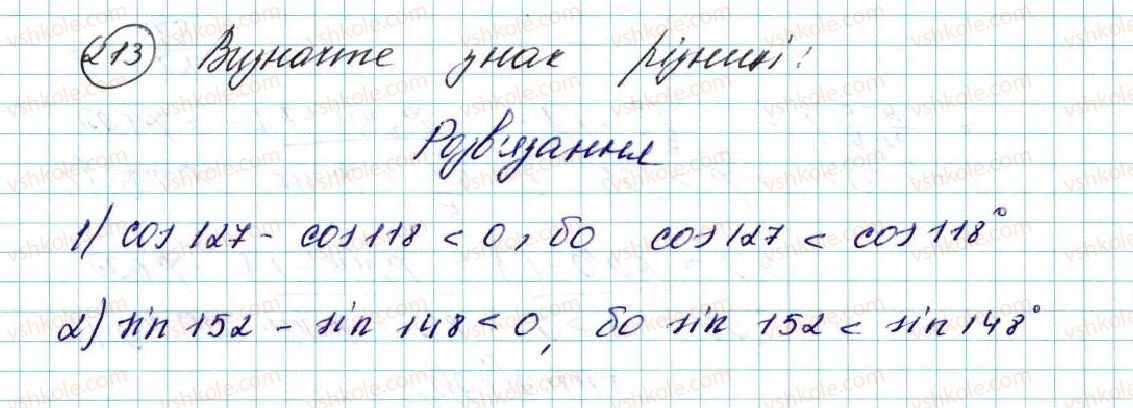 213 Визначте знак різниці:
Розв'язання
1) cos 127 - cos 118 < 0, бо cos 127 < cos 118°
2) sin 152 - sin 148 < 0, бо sin 152 < sin 148°